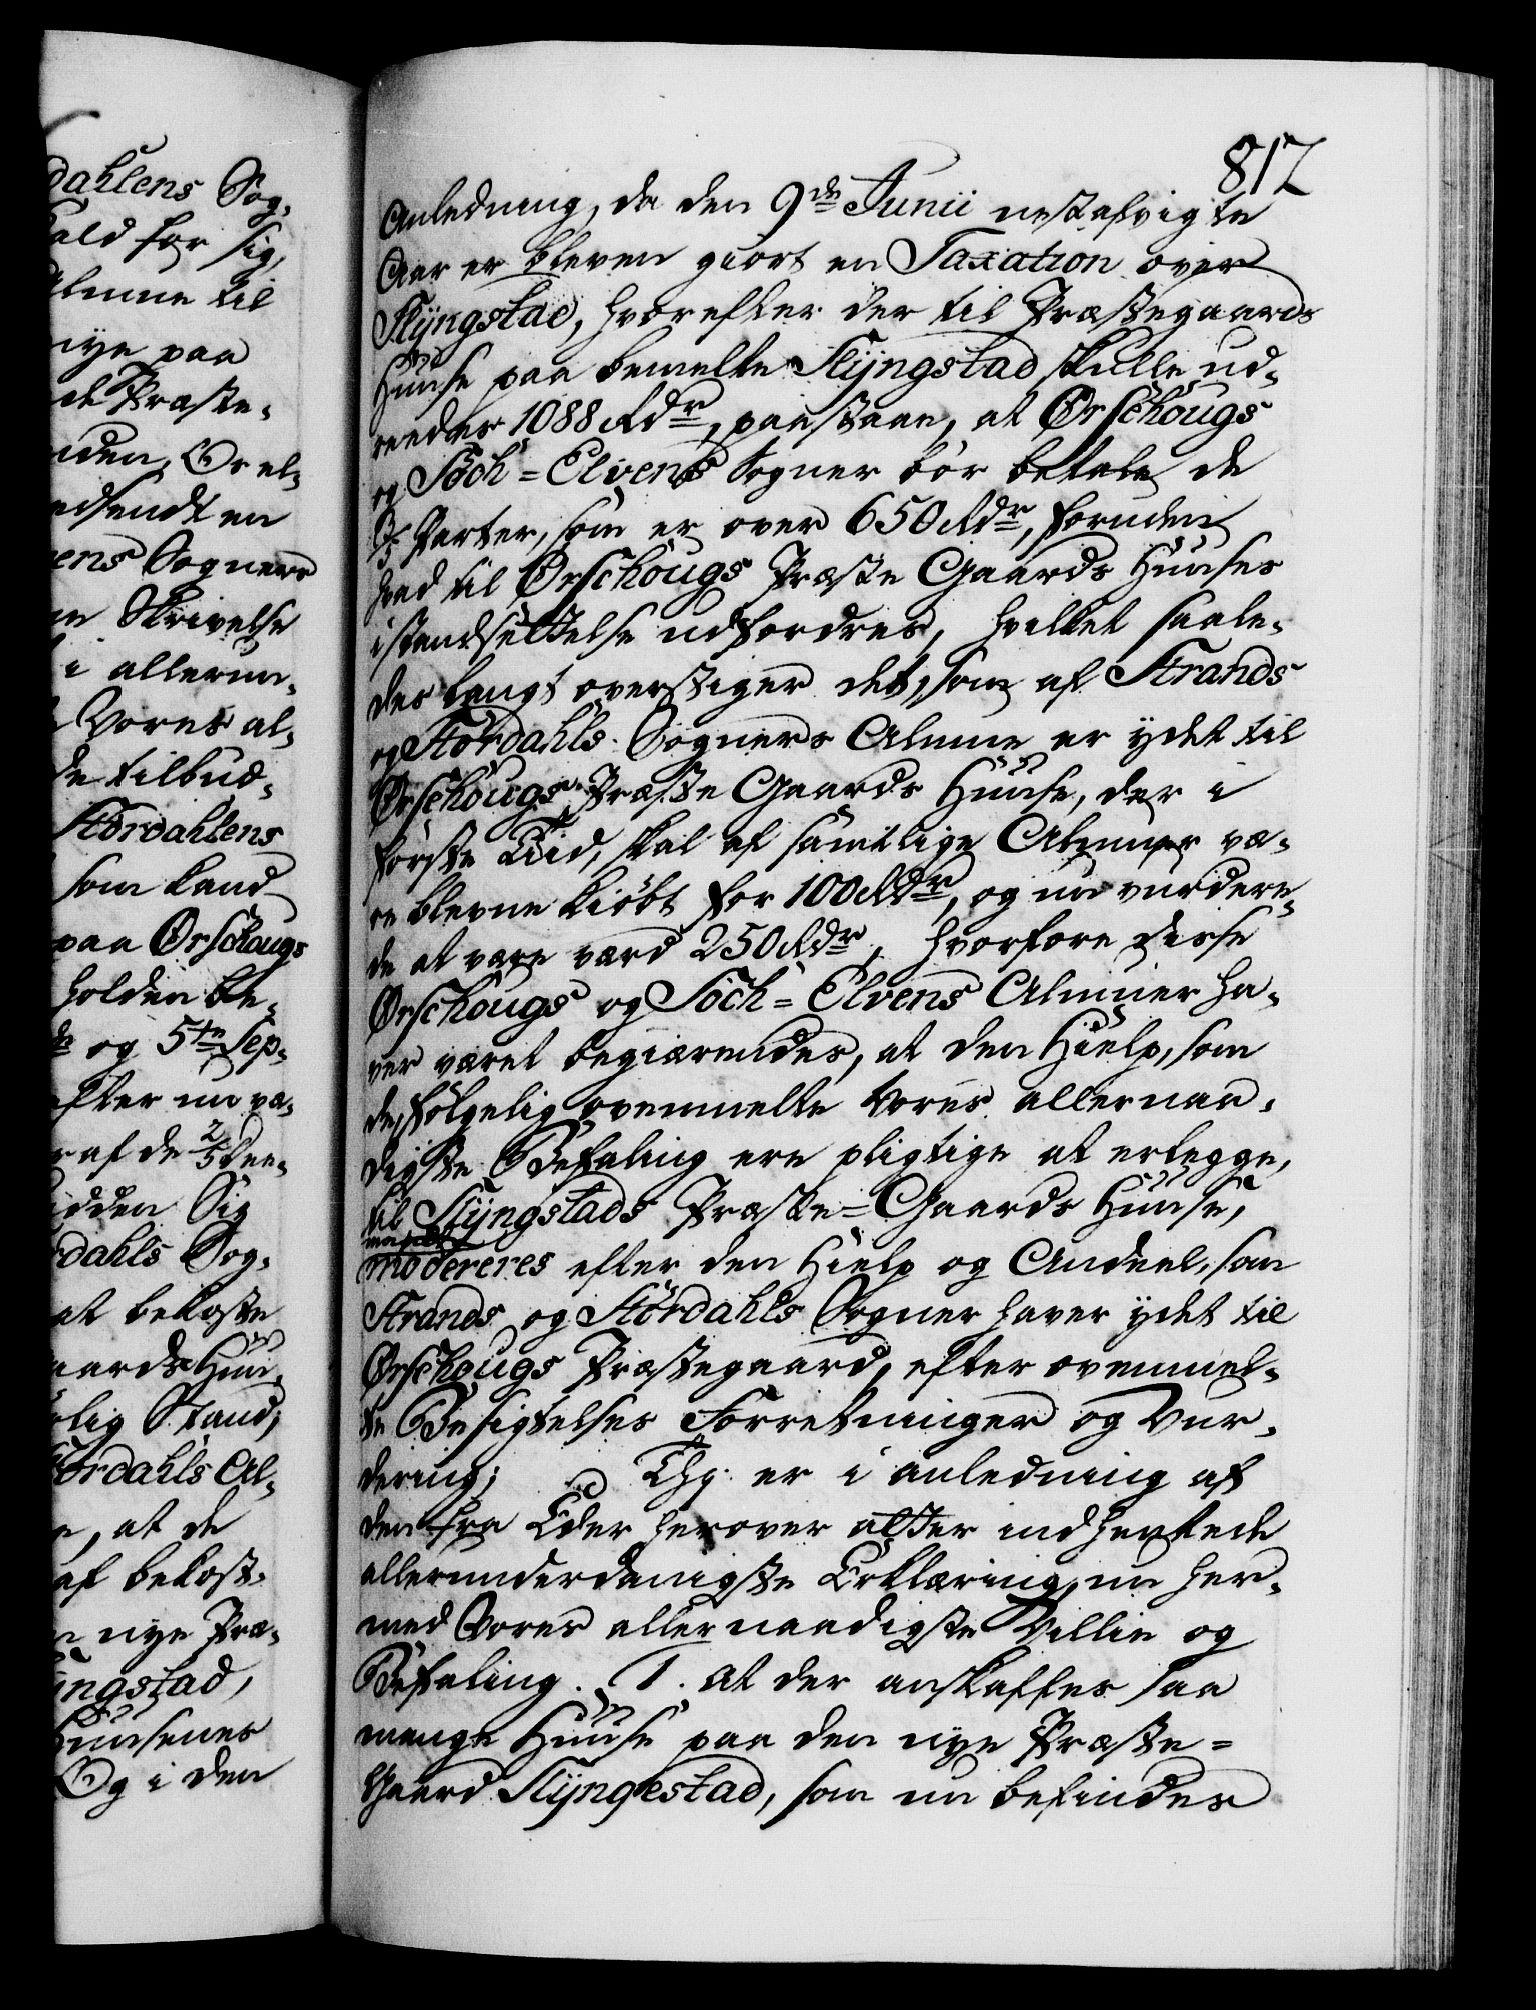 dahlens Sog-
ald for sig,
Almue til
nye paa
de Præste-
nden, Or el-
edsendt en
ens Sogners
en Skrivelse
i allerun-
Vores al-
de tilbud-
Stördahlens
som kand
paa Örschougs
holden be-
og 5te Sep-
efter nu va-
af de 2/5 dee-
idden Sig
rdahls Sog-
at bekoste
aards Huu-
lig Stand,
ördahls Al-
e, at de
af bekost-
n nye Præ-
ingstad,
Huusenes
Og i den
817
Anledning, da den 9de Junii nestafvigte
Aar er bleven giort en Taxation over
Slÿngstad, hvorefter der til Præstegaards
Huuse paa bemelte Slÿngstad skulle ud-
reedes 1088 Rdr, paastaar, at Örschougs
og Söch=Elvens Sogner bör betale de
3/5 Parter, som er over 650 Rdr, foruden
hvad til Örschougs Præste Gaards Huuses
istandsættelse udfordres, hvilket saale-
des langt overstiger det, som af Strands
og Stördahls Sogners Almue er ydet til
Örschougs Præste Gaards Huuse, der i
förste Tiid, skal af samtlige Almuer væ-
re blevne kiöbt for 100 Rdr, og nu vurdere-
de at være værd 250 Rdr, hvorfore disse
Örschougs og Söch=Elvens Almuer ha-
ver været begiærendes, at den Hielp, som
de, fölgelig ovenmelte Vores allernaa-
digste Befaling ere pligtige at erlegge,
til Slÿngstads Præste=Gaards Huuse,
maatte
modereres efter den Hielp og Andeel, som
Strands og Stördahls Sogner haver ydet til
Örschougs Præstegaard, efter ovenmel-
te Besigtelses Forretninger og Vur-
dering; Thj er i anledning af
den fra Eder herover atter indhentede
allerunderdanigste Erklæring, nu her-
med Vores allernaadigste Villie og
Befaling. 1. At der anskaffes saa
mange Huuse paa den nye Præste=
Gaard Slÿngestad, som nu befindes